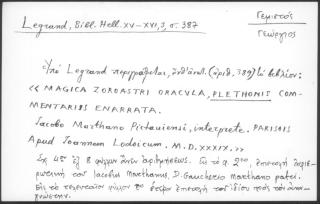 Legrand, Bibl. Hell. XV-XVI, 3, σ. 387
Γεμιστός
Γεώργιος
Ὑπὸ Legrand περιγράφεται, (ἀριθ. 389) τὸ βιβλίον:
« MAGICA ZOROASTRI ORACULA, PLETHONIS COM-
MENTARIIS ENARRATA.
Jacobo Marthano Pictaviensi, interprete. PARISIIS
Apud Joannem Lodoicum. M.D.XXXIX. »
Σχ. 4ον ἐξ 8 φύλλων ἄνευ ἀριθμήσεως. Εἰς τὸ φ. 2ον, ἐπιστολὴ
τοῦ Jacobus Marthanus, D. Gaucherio Marthano patri.
Εἰς τὸ τελευταῖον φύλλον ἑτέρα ἐπιστολὴ τοῦ ἰδίου πρὸς τὸν